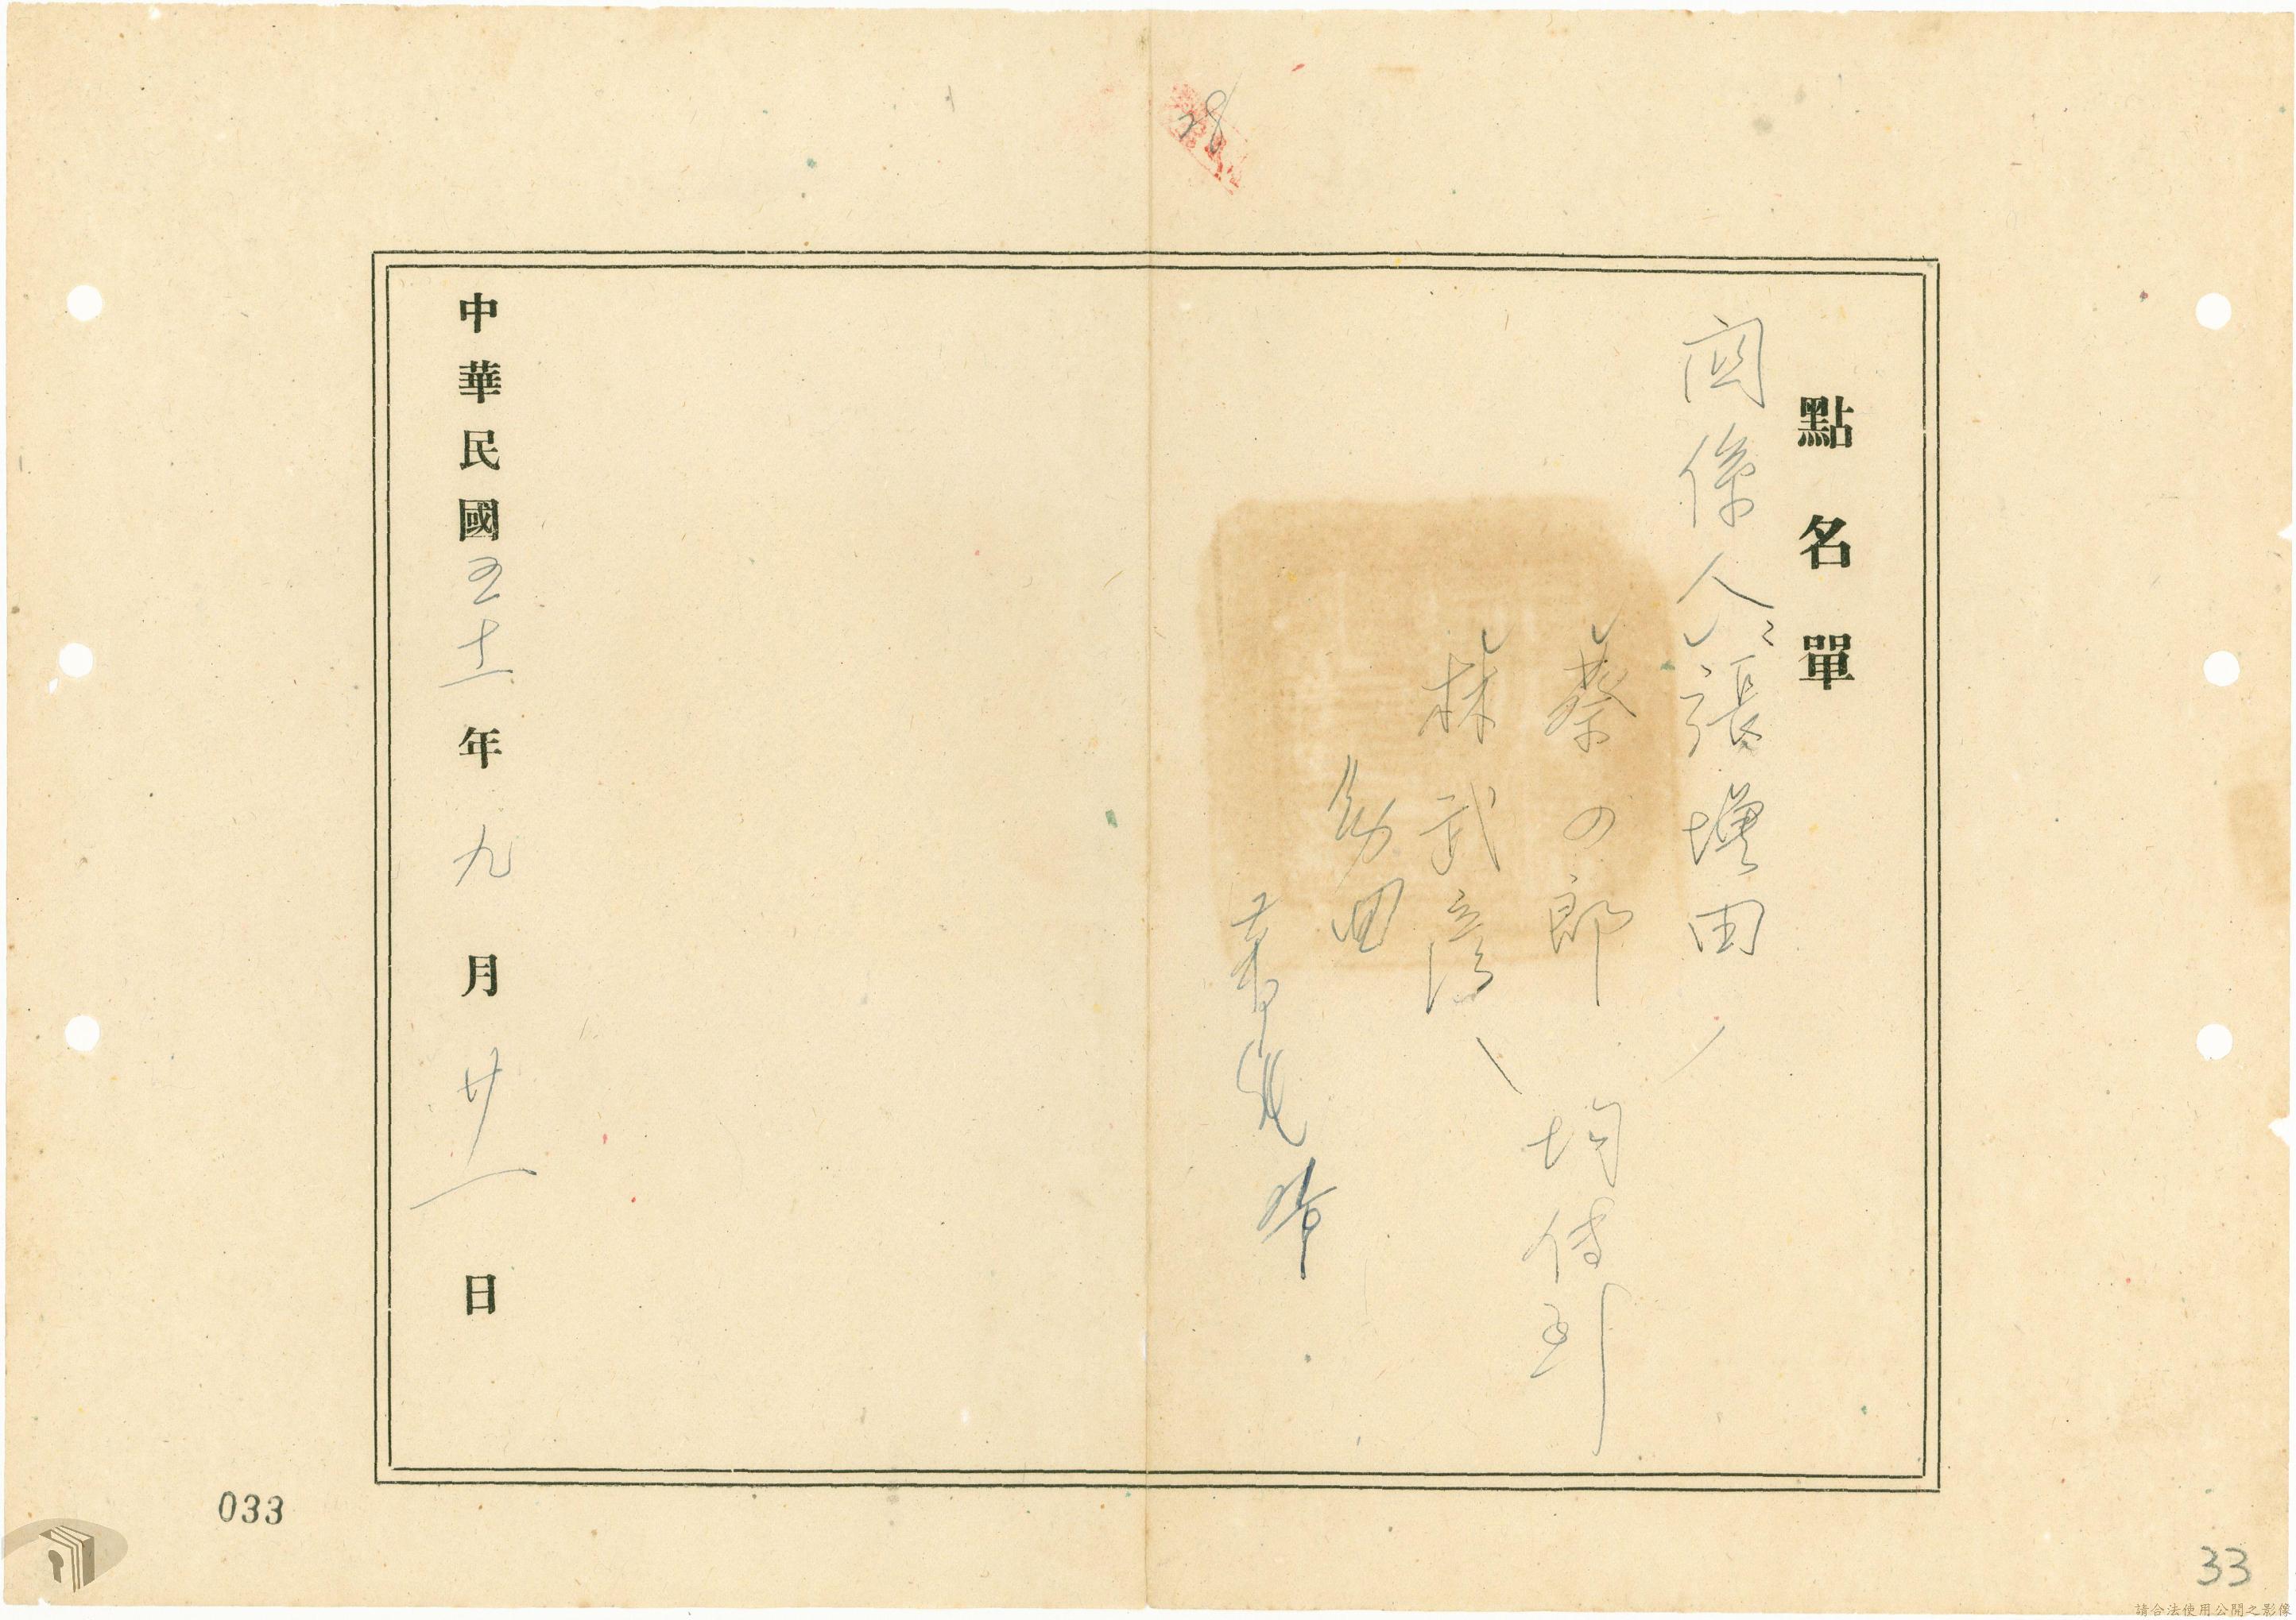 28
點名單
關係人 張增田
蔡四郎
林武彥
均傳到
中華民國五十一年九月廿一日
033
33
請合法使用公開之影像